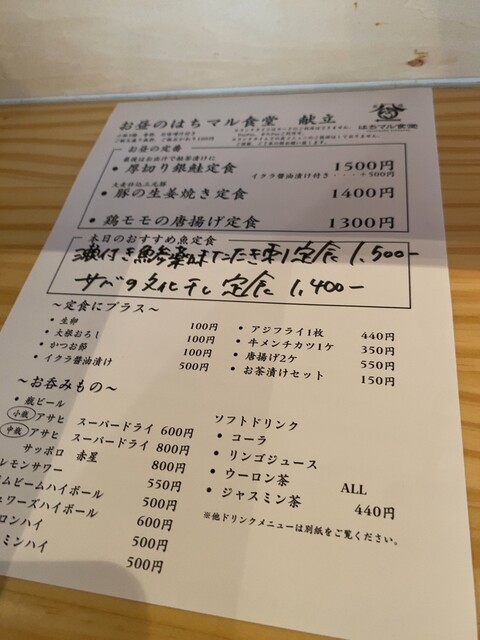 お昼のはちマル食堂 献立
はちマル食堂
お昼の定番
最後はお出汁で鮭茶漬けに
・厚切り銀鮭定食 1500円
イクラ醤油漬け付き・・・+500円
・豚の生姜焼き定食 1400円
・鶏モモの唐揚げ定食 1300円
本日のおすすめ魚定食
薬味たたき 定食 1,500-
サバの文化干し定食 1,400-
～定食にプラス～
・生卵 100円
・大根おろし 100円
・かつお節 100円
・イクラ醤油漬け 500円
・アジフライ1枚 440円
・牛メンチカツ1ケ 350円
・唐揚げ2ケ 550円
・お茶漬けセット 150円
～お呑みもの～
・瓶ビール
小瓶 アサヒ スーパードライ 600円
中瓶 アサヒ スーパードライ 800円
サッポロ 赤星 800円
レモンサワー 550円
ムビームハイボール 500円
ワーズハイボール 600円
ロンハイ 500円
ミンハイ 500円
ソフトドリンク
・コーラ
・リンゴジュース
・ウーロン茶
・ジャスミン茶
ALL
440円
※他ドリンクメニューは別紙をご覧ください。